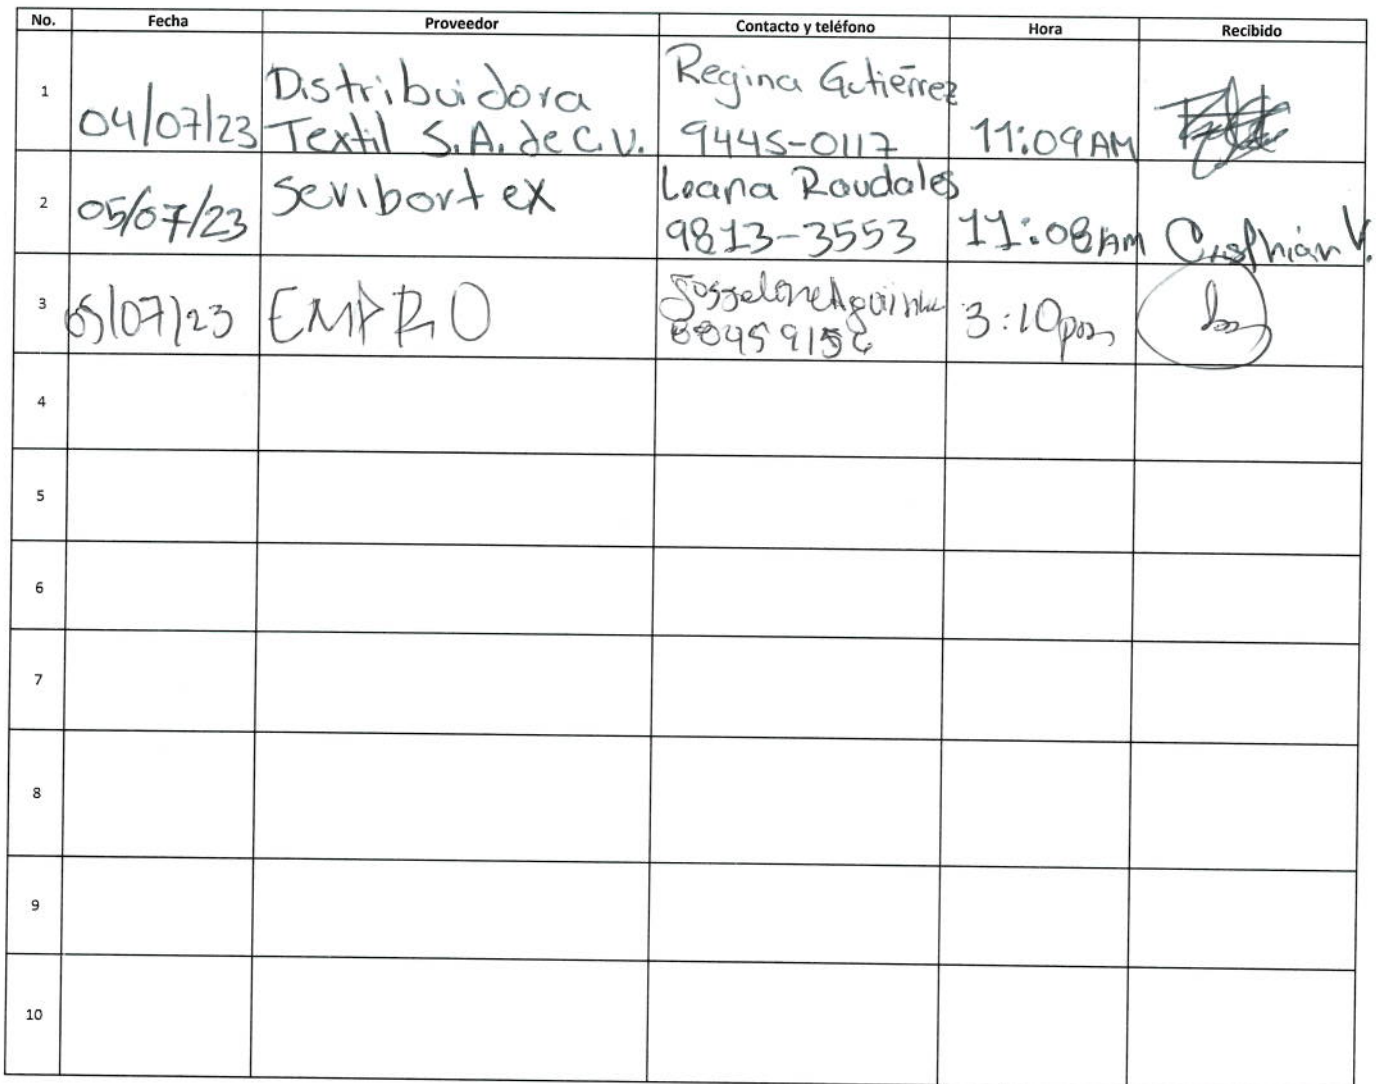 No. Fecha Proveedor Contacto y teléfono Hora Recibido
1 04/07/23 Distribuidora Textil S.A. de C.V. Regina Gutiérrez 9445-0117 11:09 AM
2 05/07/23 Sevibortex Loana Raudales 9813-3553 11:08 AM Cristhián V.
3 05/07/23 EMPRO 3:10 pm
4
5
6
7
8
9
10